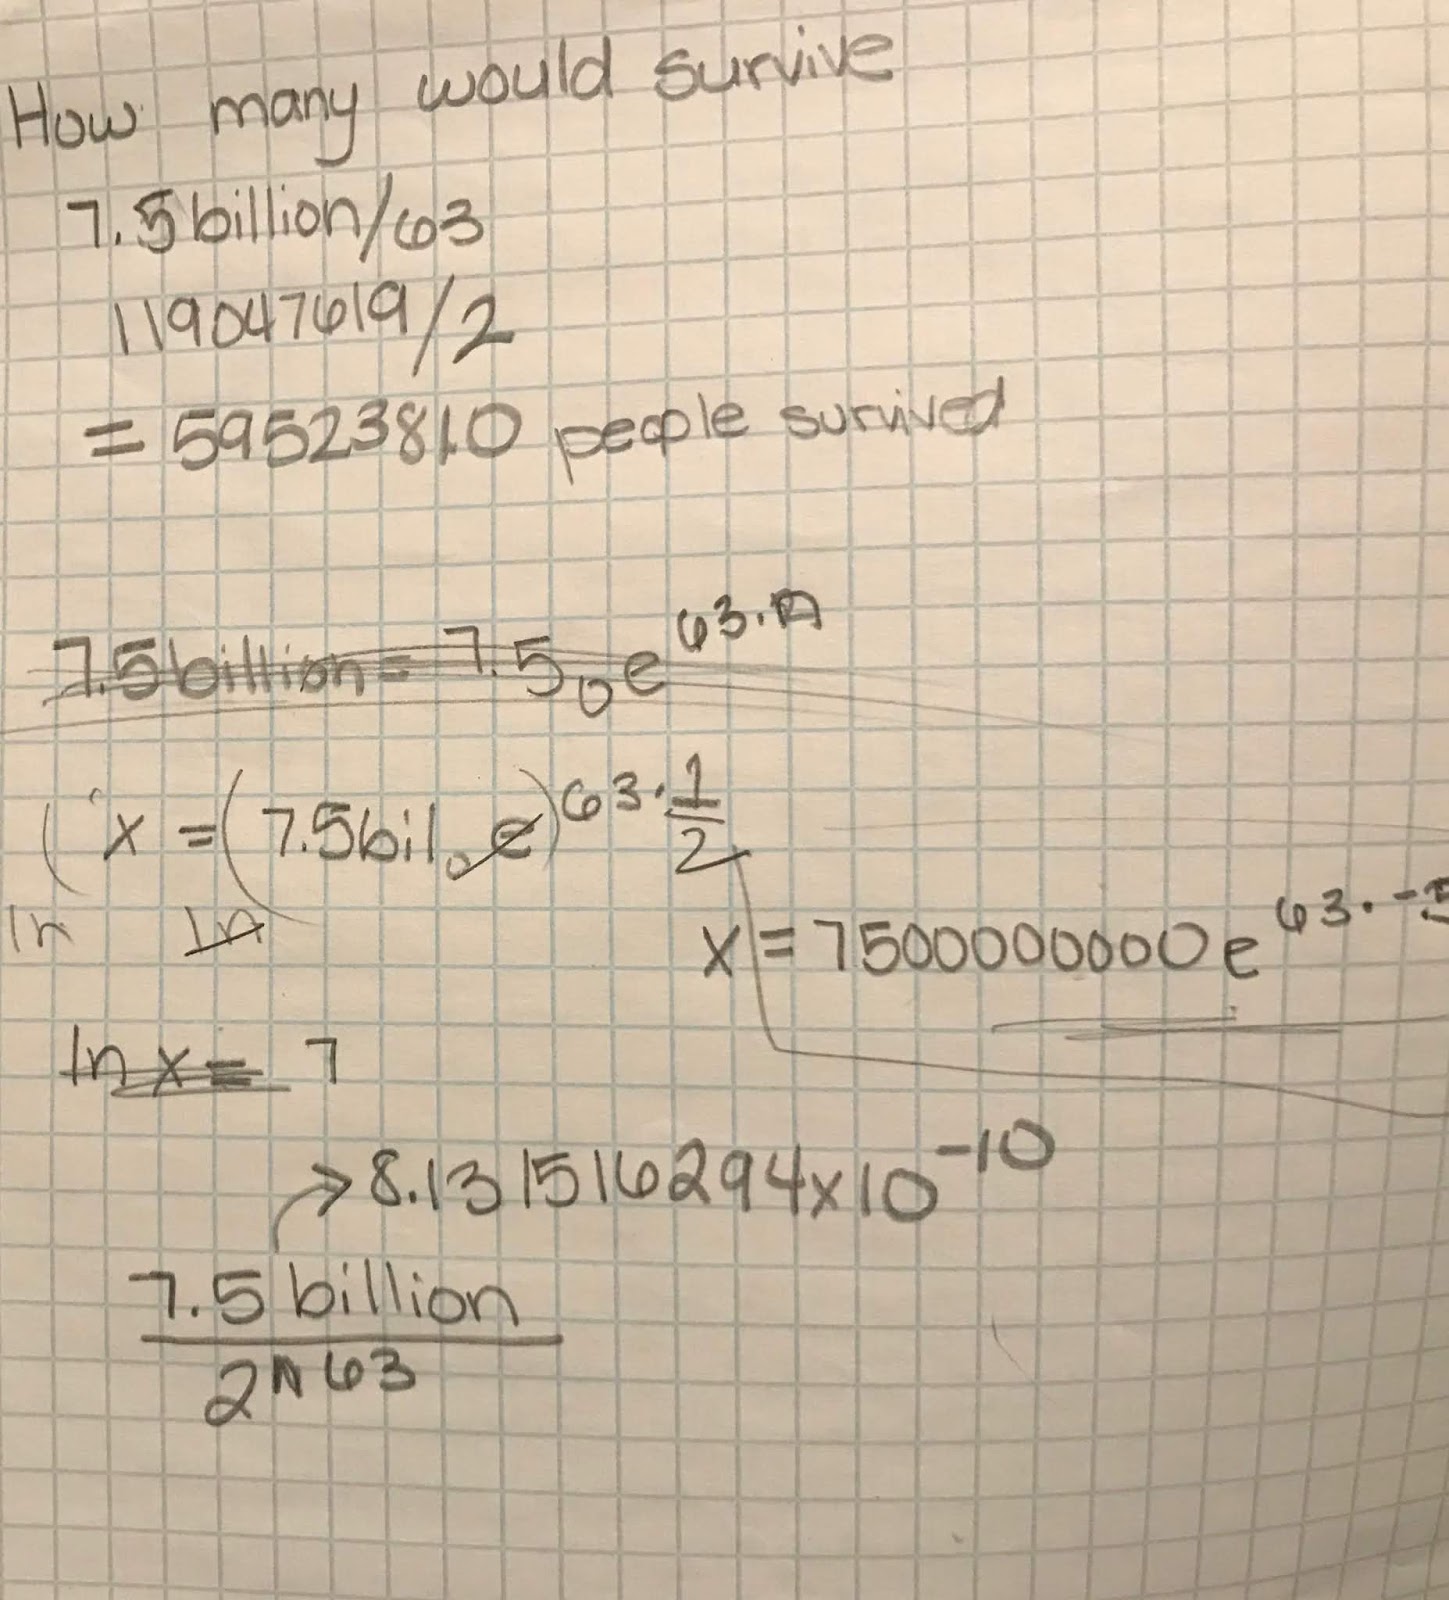 How many would survive
7.5 billion/63
119047619/2
= 59523810 people survived
7.5 billion = 7.5₀e^63·
( x = (7.5bil.e)^63·1/2
ln ln
x = 7500000000e^63·-.5
ln x = 7
→ 8.131516294x10^-10
7.5 billion
2^63